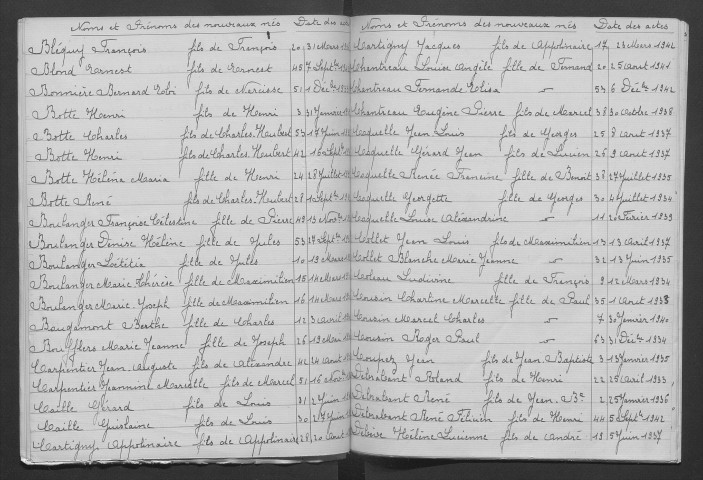 Noms et Prénoms des nouveaux nés Date des
Bléguy François fils de François 20 31 Mars
Blond Ernest fils de Ernest 45 7 Sept
Bonnière Bernard fils de Narcisse 51 1 Déc
Botte Henri fils de Henri 3 31 Janvier
Botte Charles fils de Charles Hubert 53 17 Juin
Botte Henri fils de Charles Hubert 42 16 Sept
Botte Hélène Maria fille de Henri 24 28 Juillet
Botte René fils de Charles Hubert 28 1 Sept
Boulanger Françoise Célestine fille de Pierre 49 13 Nov
Boulanger Denise Hélène fille de Jules 53 27 Sept
Boulanger Laëtitia fille de Jules 10 19 Mars
Boulanger Marie Thérèse fille de Maximilien 15 14 Mars
Boulanger Marie Joseph fille de Maximilien 16 14 Mars
Bougamont Berthe fille de Charles 12 3 Avril
Bouffers Marie Jeanne fille de Joseph 26 19 Mai
Carpentier Jean Auguste fils de Alexandre 42 24 Août
Carpentier Jeannine Marcelle fils de Marcel 51 16 Nov
Caille Gérard fils de Louis 31 2 Juin
Caille Ghislaine fils de Louis 30 27 Juin
Cartigny Appolinaire fils de Appolinaire 28 20 Août
Noms et Prénoms des nouveaux nés Date des actes
Cartigny Jacques fils de Appolinaire 17 23 Mars 1942
Chantreau Louise Angèle fille de Fernand 20 25 Août 1941
Chantreau Fernande Elisa 〃 53 6 Déc 1942
Chantreau Eugène Pierre fils de Marcel 38 30 Octobre 1938
Caquelle Jean Louis fils de Georges 25 8 Août 1937
Caquelle Gérard Jean fils de Lucien 26 9 Août 1937
Caquelle Renée Francine fille de Benoit 38 27 Juillet 1935
Caquelle Georgette fille de Georges 30 4 Juillet 1934
Caquelle Louise Alexandrine 〃 11 20 Février 1939
Collet Jean Louis fils de Maximilien 13 13 Avril 1937
Collet Blanche Marie Jeanne 〃 32 13 Juin 1935
Coteau Ludivine fille de François 9 12 Mars 1934
Cousin Charline Marcelle fille de Paul 35 1 Août 1938
Cousin Marcel Charles 〃 7 30 Janvier 1940
Cousin Roger Paul 〃 63 31 Déc 1934
Coupez Jean fils de Jean Baptiste 3 13 Janvier 1935
Delrabant Roland fils de Henri 22 25 Avril 1933
Delrabant René fils de Jean Bte 2 25 Janvier 1936
Delrabant René fils de Henri 44 5 Sept 1942
Hélène Lucienne fils de André 19 5 Juin 1937